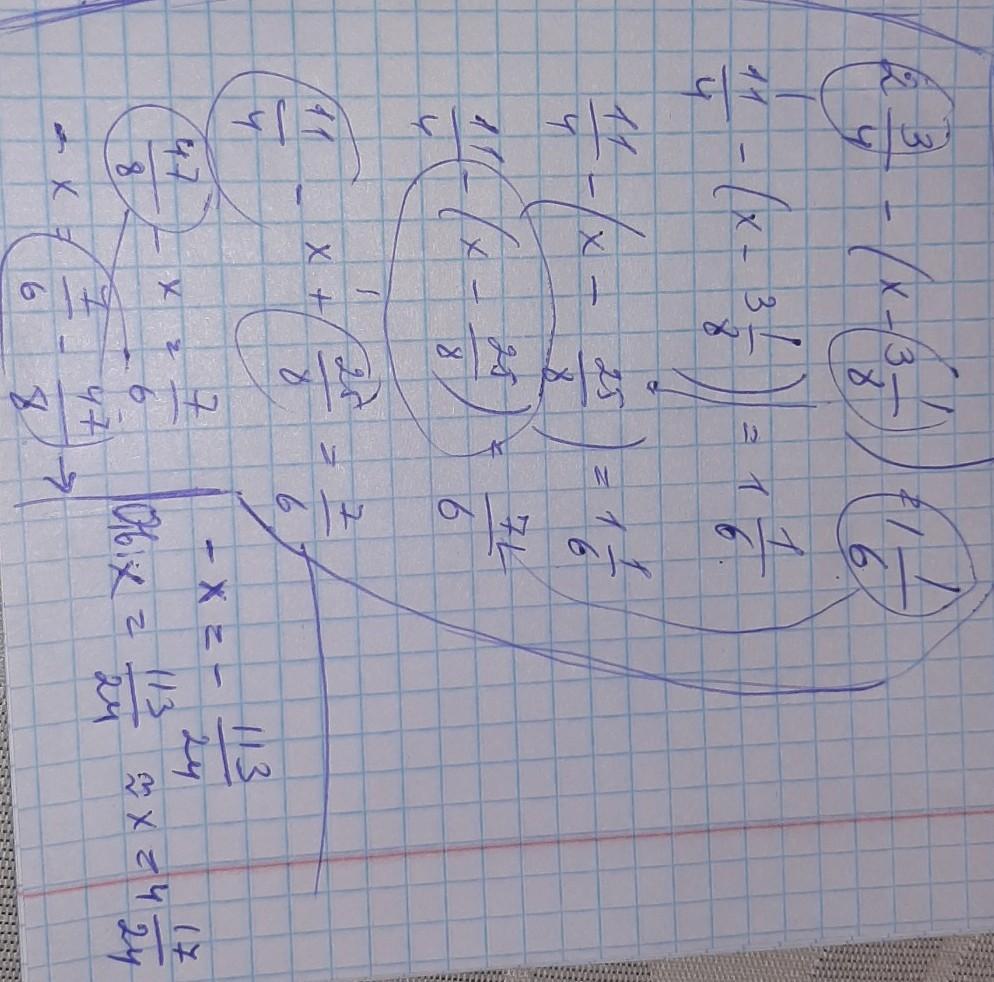 2 3/4 - (x - 3 1/8) = 1 1/6
11/4 - (x - 3 1/8) = 1 1/6
11/4 - (x - 25/8) = 1 1/6
11/4 - (x - 25/8) = 7/6
11/4 - x + 25/8 = 7/6
47/8 - x = 7/6
- x = 7/6 - 47/8 →
- x = - 113/24
x = 113/24 ≈ x = 4 17/24